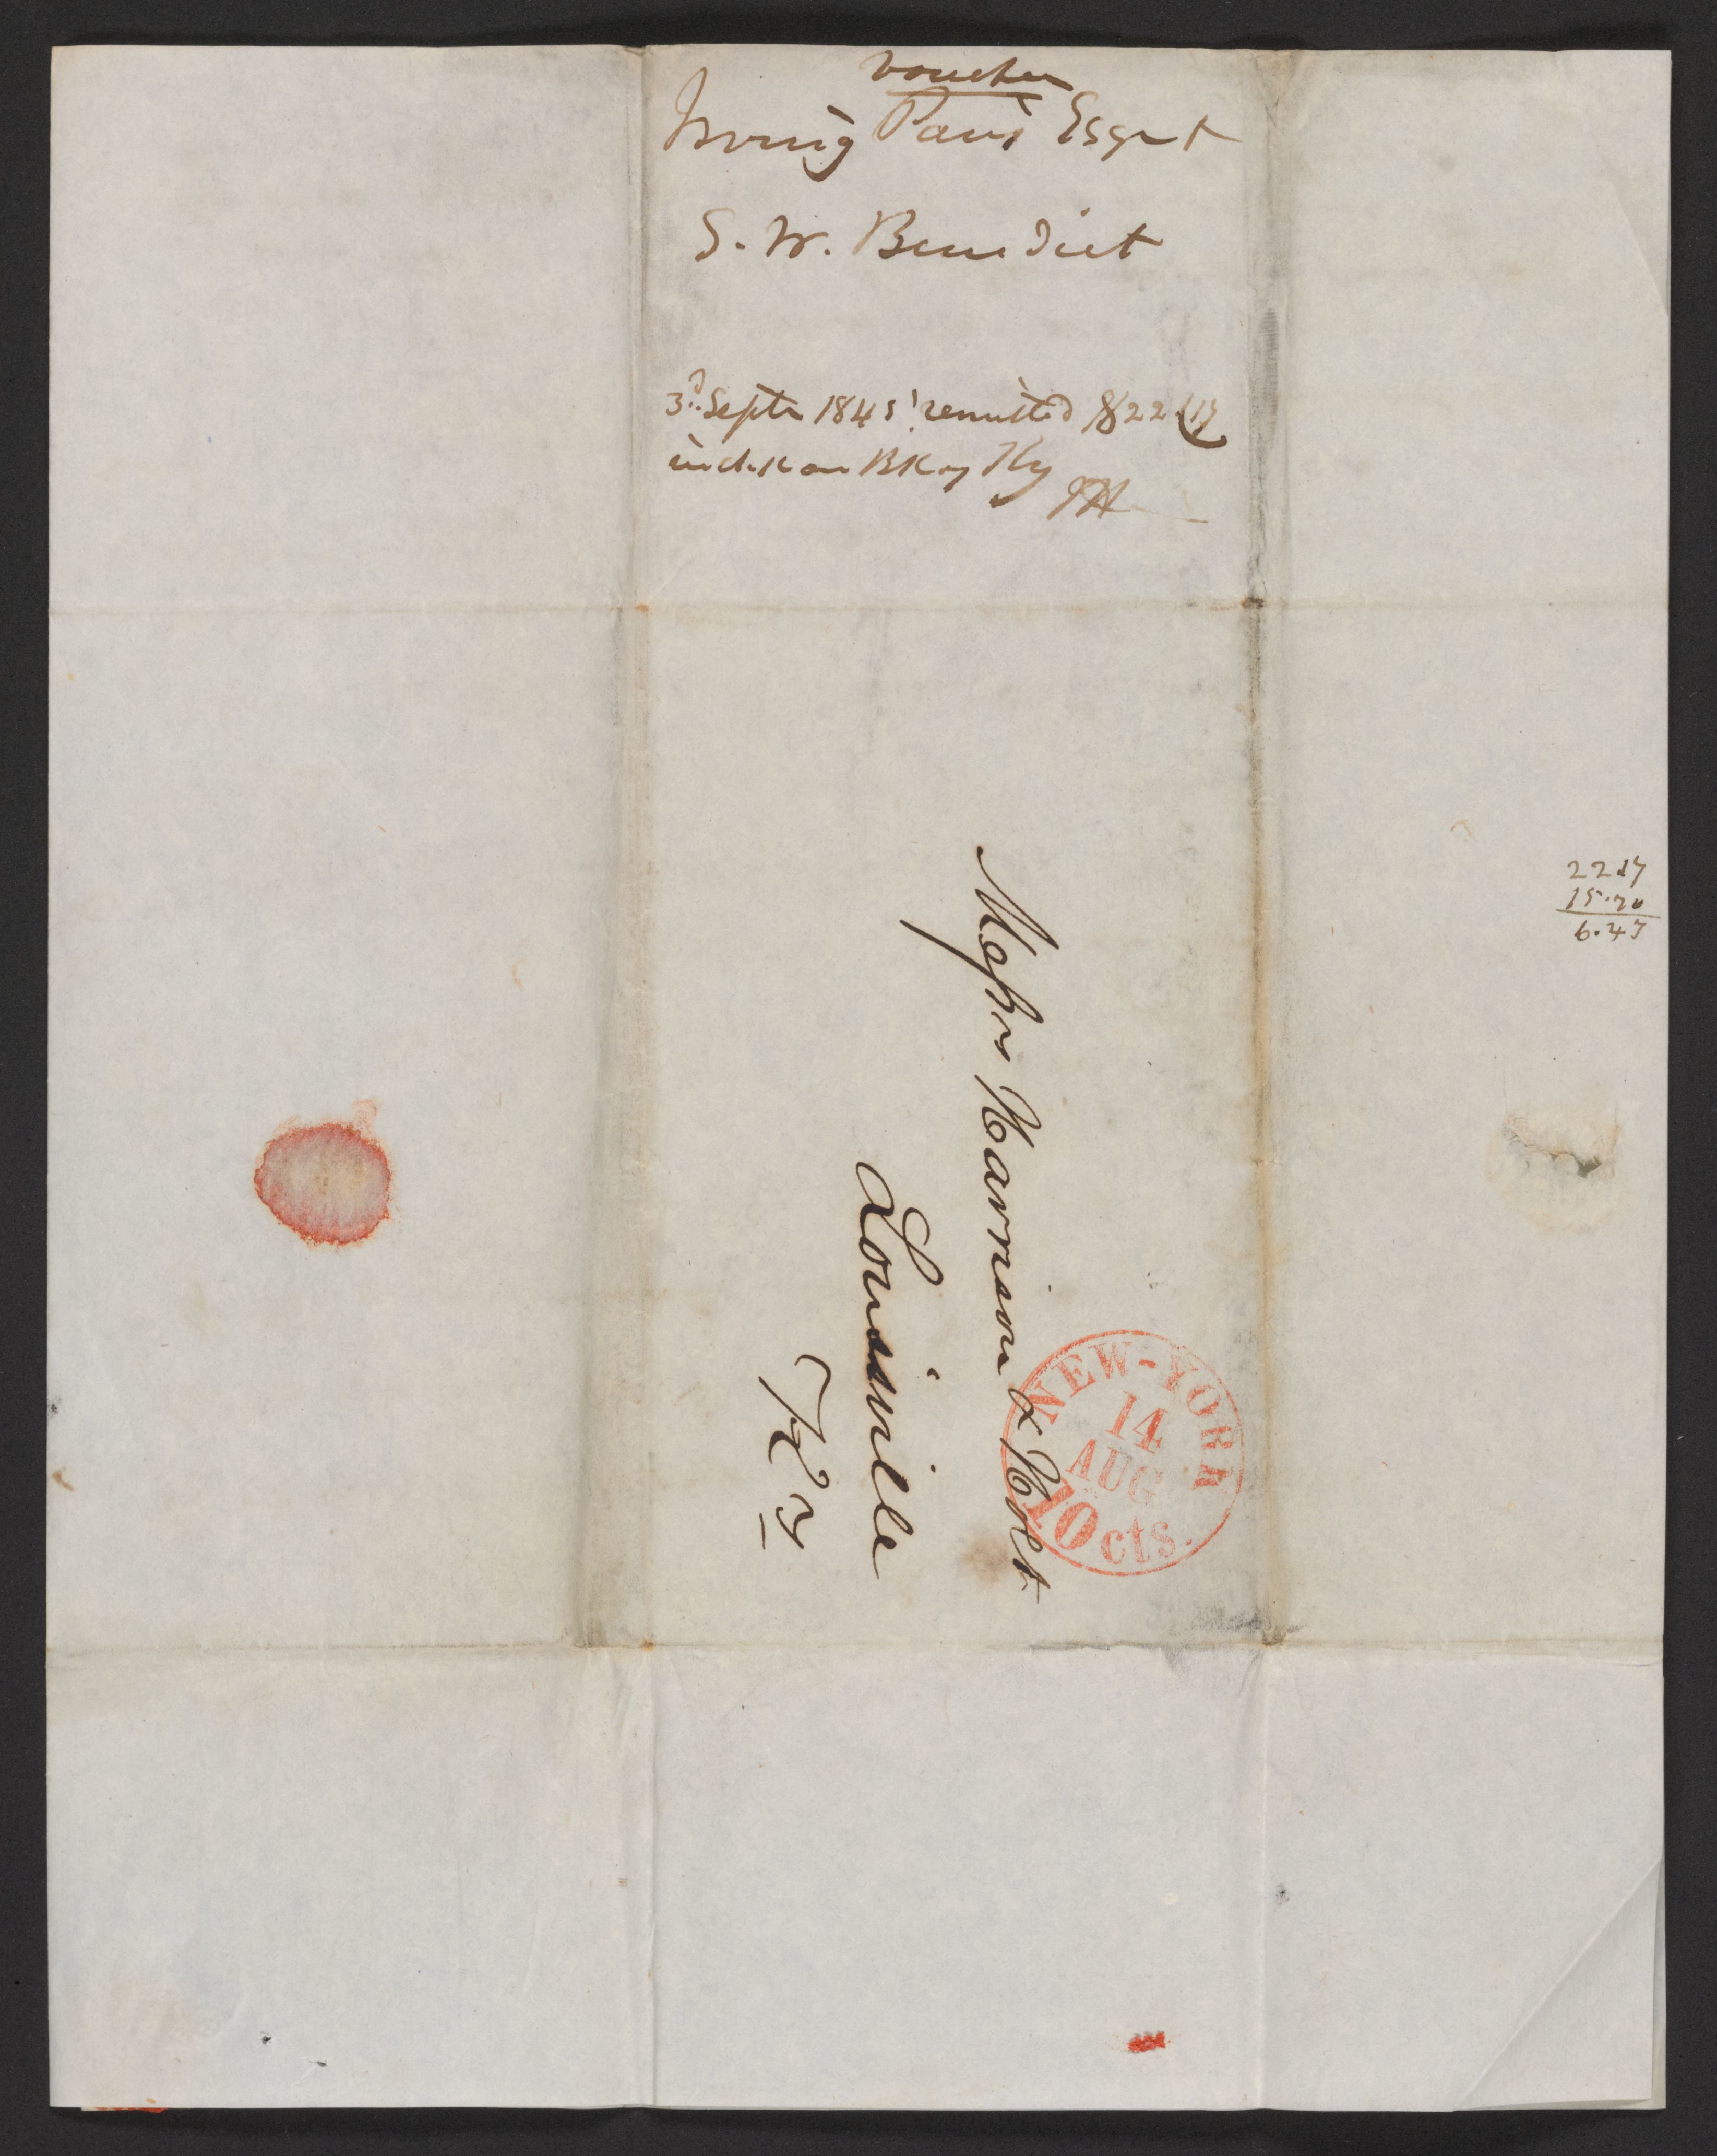 voucher
Irving Paris Esqr +
S. W. Benedict
3d. Septr 1845! remitted $22.17
in check on BK of Ky JH
22.17
15.70
6.47
Messrs Harrison & Holt
Louisville
Ky
NEW-YORK
14
AUG
10 cts.